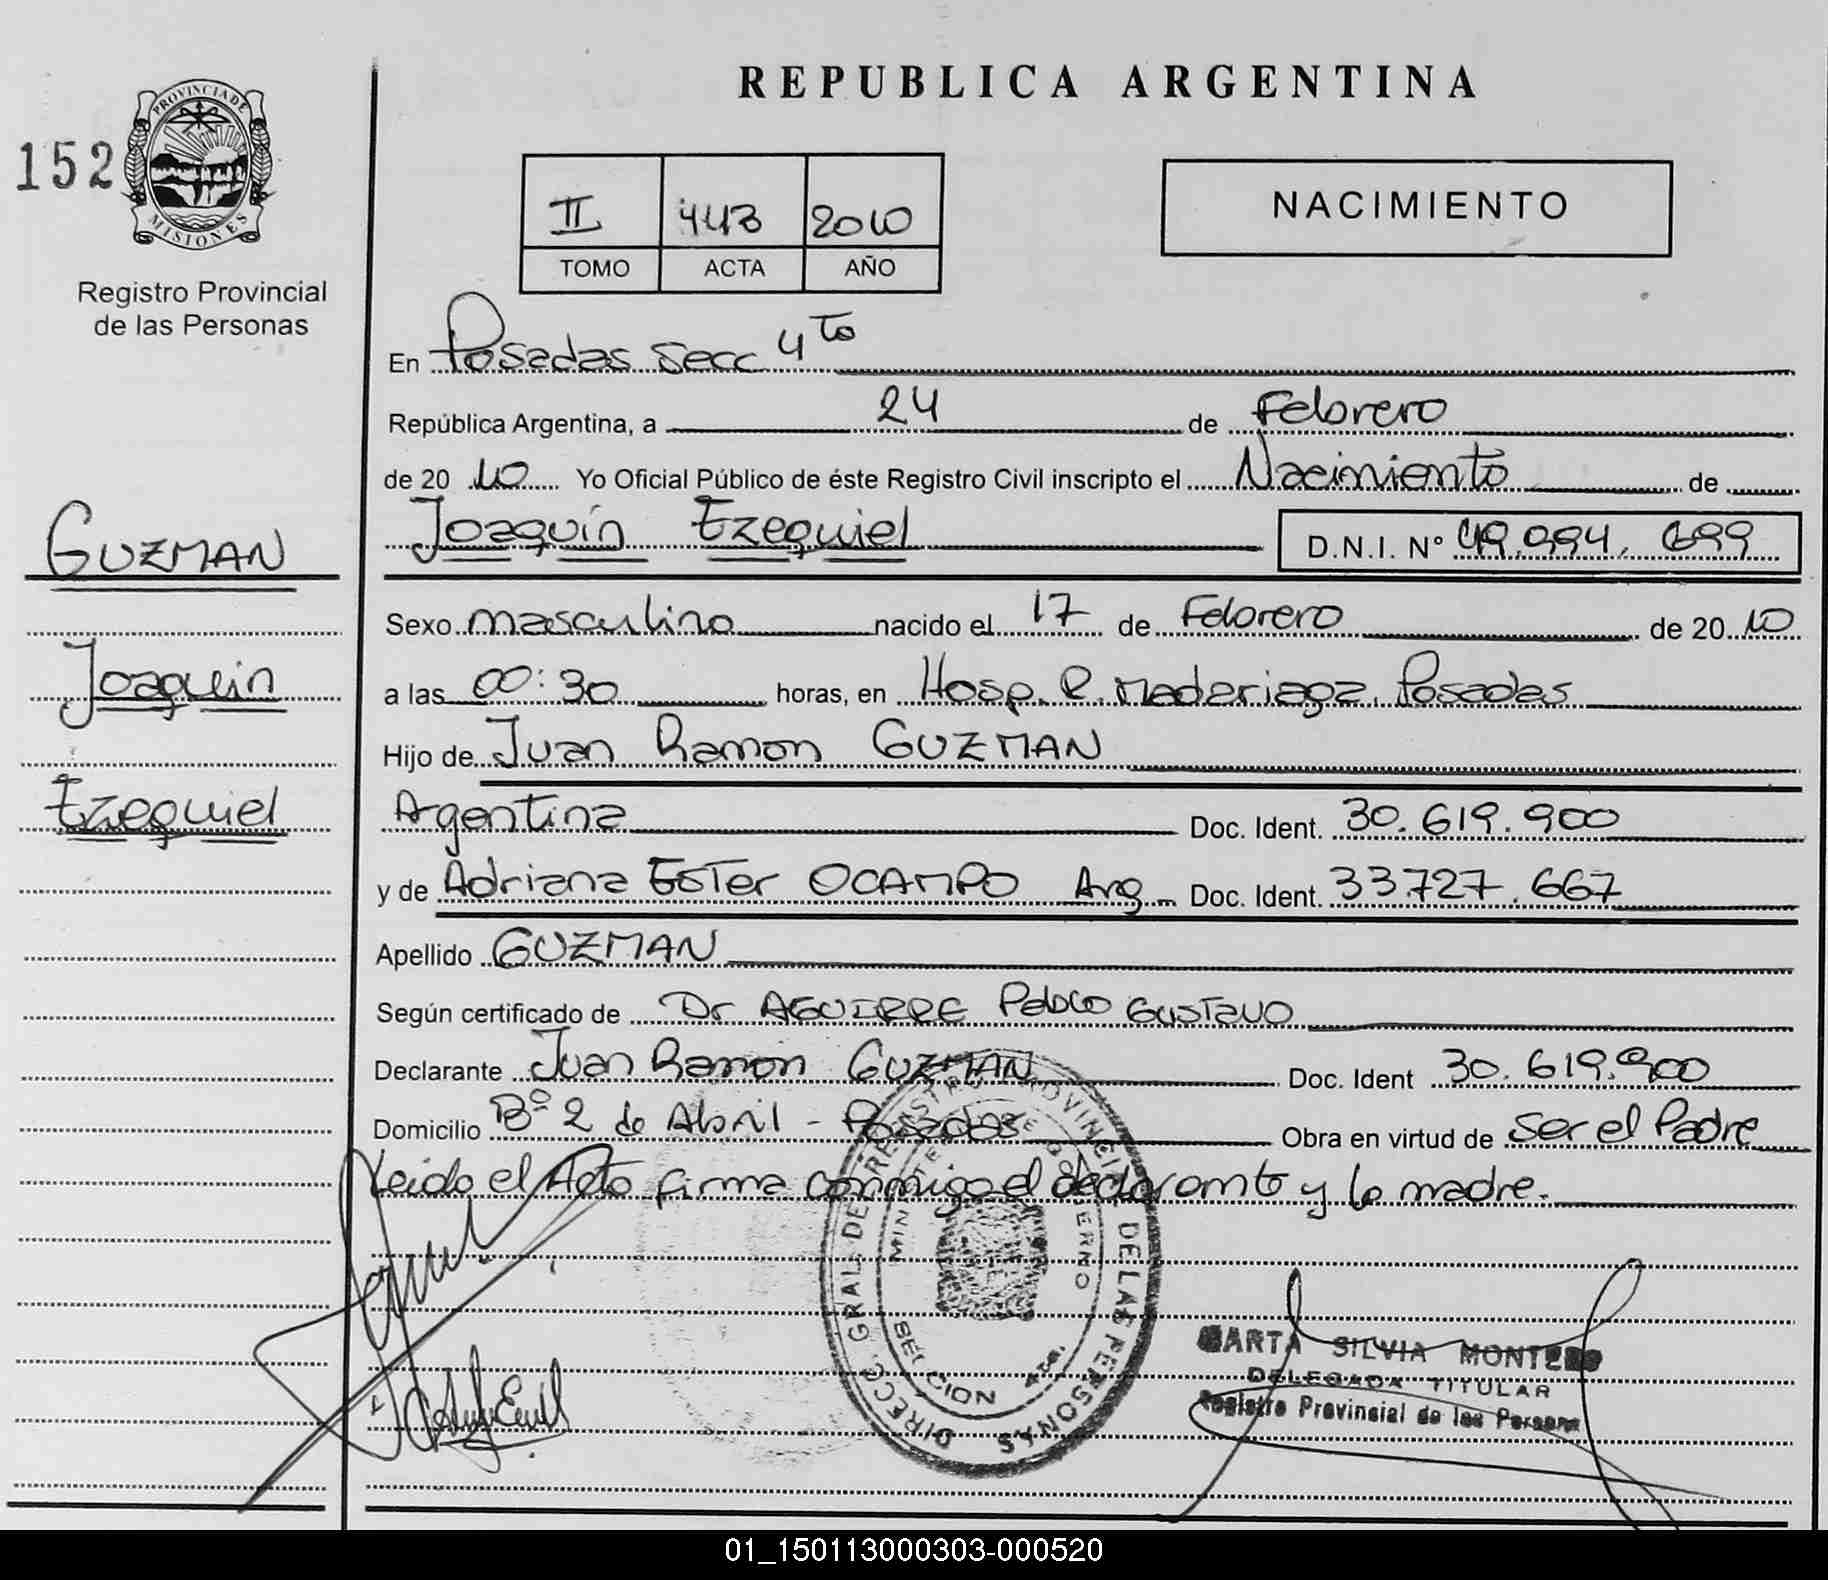 REPUBLICA ARGENTINA
152
PROVINCIA DE
MISIONES
Registro Provincial
de las Personas
II 443 2010
TOMO ACTA AÑO
NACIMIENTO
En Posadas Secc 4to
República Argentina, a 24 de Febrero
de 2010 Yo Oficial Público de éste Registro Civil inscripto el Nacimiento de
Joaquín Ezequiel D.N.I. N° 49.994.699
GUZMAN
Joaquin
Ezequiel
Sexo masculino nacido el 17 de Febrero de 2010
a las 00:30 horas, en Hosp. R. Madariaga. Posadas
Hijo de Juan Ramon GUZMAN
Argentina Doc. Ident. 30.619.900
y de Adriana Ester OCAMPO Arg. Doc. Ident. 33.727.667
Apellido GUZMAN
Según certificado de Dr AGUIRRE Pablo Gustavo
Declarante Juan Ramon GUZMAN Doc. Ident 30.619.900
Domicilio Bº 2 de Abril - Posadas Obra en virtud de ser el Padre
Leido el Acto firma conmigo el declarante y la madre.
DIRECC. GRAL. DE REGISTRO PROVINCIAL DE LAS PERSONAS
MINISTERIO DE GOBIERNO
MARTA SILVIA MONTERO
DELEGADA TITULAR
Registro Provincial de las Personas
01_150113000303-000520